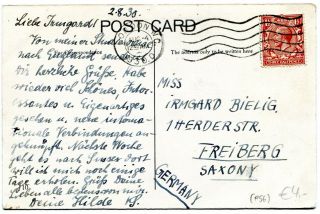 2.8.30.
Liebe Irmgard!
POST CARD
The address only to be written here
Von meiner Studienreise
nach England sende ich
Dir herzliche Grüße. Habe
wieder viel Schönes, Inter-
essantes u. Eigenartiges
gesehen u. neue interna-
tionale Verbindungen an-
geknüpft. Nächste Woche
geht es nach
will ich mich noch einige
Tage erholen. Grüß Deine
Lieben alle
Deine Hilde
MISS
IRMGARD BIELIG
1 HERDERSTR.
FREIBERG
SAXONY
GERMANY
(856)
€4.-